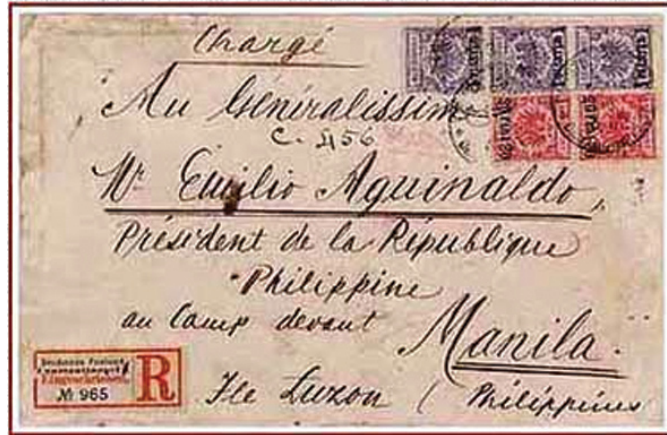 Chargé
Au Généralissime
C. 456
Mr Emilio Aguinaldo,
Président de la République
Philippine
au Camp devant
Manila.
Ile Luzon (Philippines
Eingeschrieben.
№ 965
R